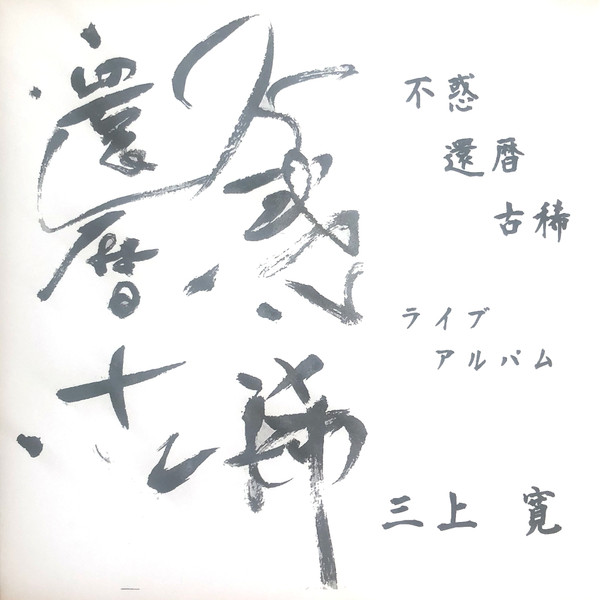 不惑
還暦
古稀
不惑
還暦
古稀
ライブ
アルバム
三上 寛